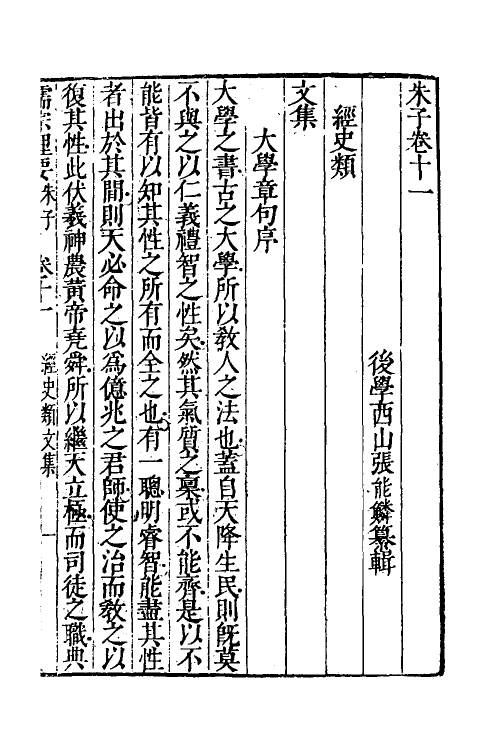 朱子卷十一
後學西山張能鱗纂輯
經史類
文集
大學章句序
大學之書古之大學所以教人之法也蓋自天降生民則既莫
不與之以仁義禮智之性矣然其氣質之稟或不能齊是以不
能皆有以知其性之所有而全之也有一聰明睿智能盡其性
者出於其間則天必命之以爲億兆之君師使之治而教之以
復其性此伏羲神農黃帝堯舜所以繼天立極而司徒之職典
儒宗理要 朱子 卷十一 經史類文集 一